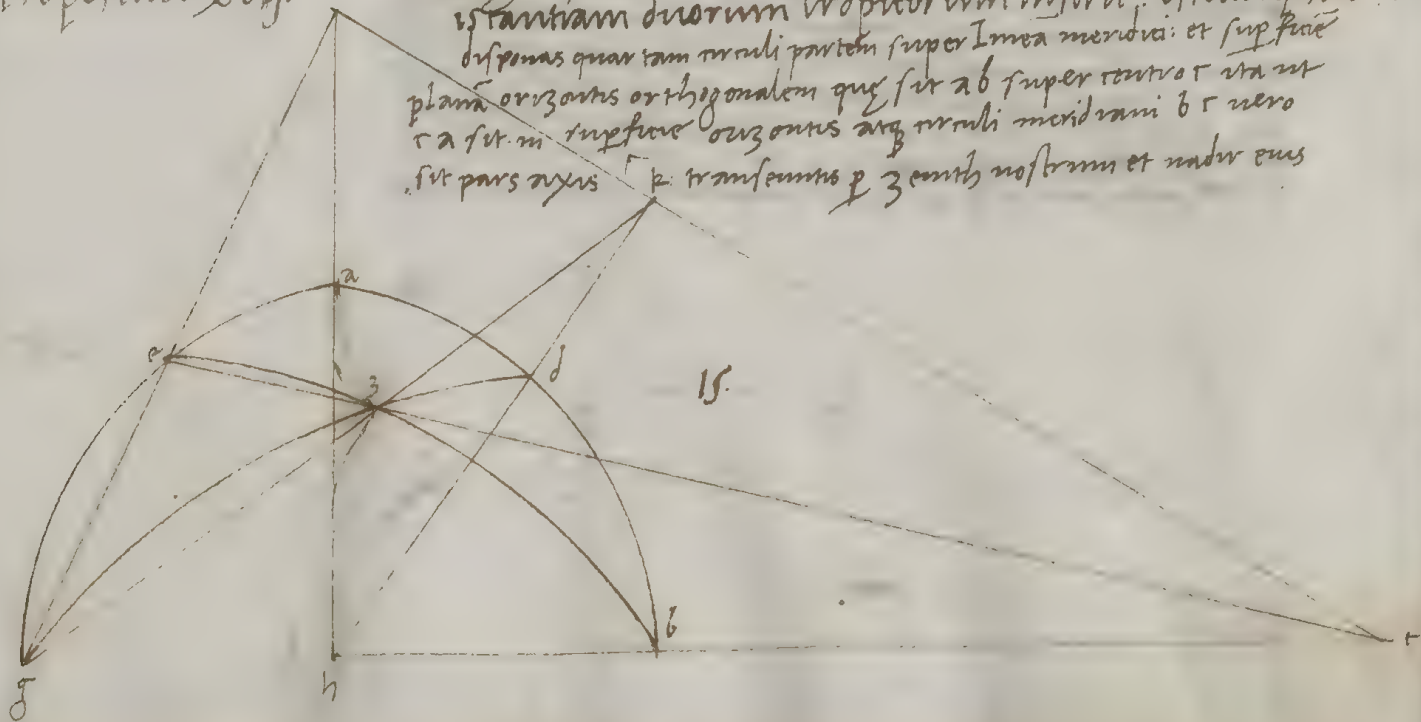 istantiam duorum tropicorum
disponas quartam circuli partem super lineā meridiei: et supficiē
planā orizontis orthogonalem quę sit ab super centro c ita ut
c a sit in superficie orizontis atq circuli meridiani b c vero
sit pars axis transeuntis p zenith nostrum et nadir eius
k
a
e
z
d
15.
b
g
h